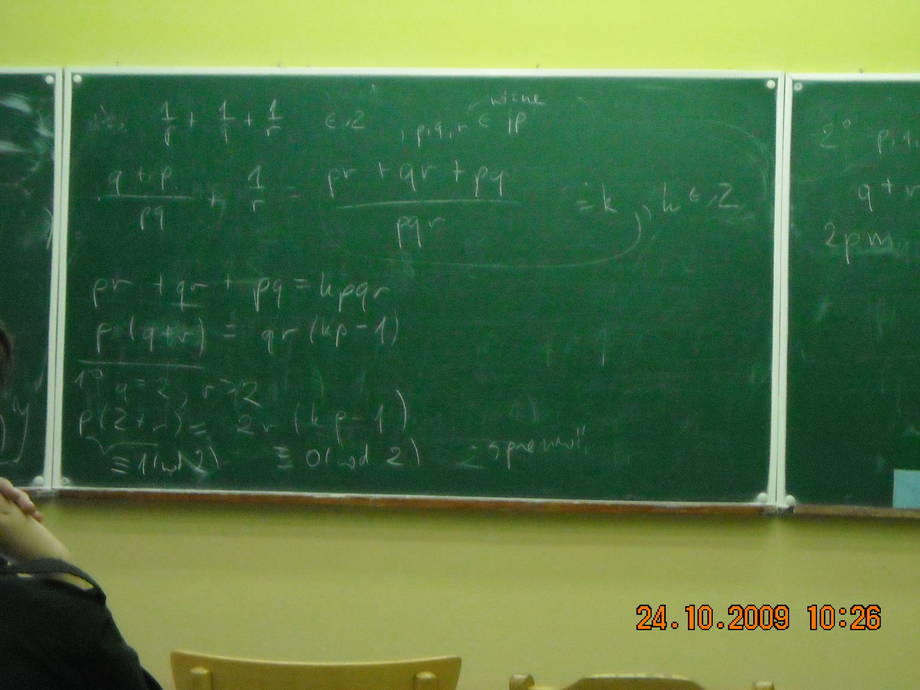 1/p + 1/q + 1/r ∈ Z , p, q, r ∈ IP
(q + p)/pq + 1/r = (pr + qr + pq)/pqr = k, k ∈ Z
pr + qr + pq = kpqr
p(q+r) = qr(kp-1)
1° q = 2, r > 2
p(2+r) = 2r(kp-1)
≡ 1(mod 2) ≡ 0(mod 2)
2° p, q,
q + r
2pm
24.10.2009 10:26